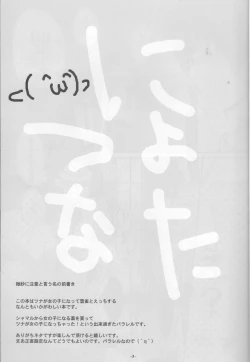 にょた
ツナ
⊂( ^ω^)⊃
微妙に注意と言う名の前書き
この本はツナが女の子になって雲雀とえっちする
なんともいかがわしい本です。
シャマルから女の子になる薬を買って
ツナが女の子になっちゃった!という出来過ぎたパラレルです。
ありがちネタですが楽しんで頂けると嬉しいです。
まあ必需設定なんてどうでもよいのです。パラレルなので(^ω^)
-3-